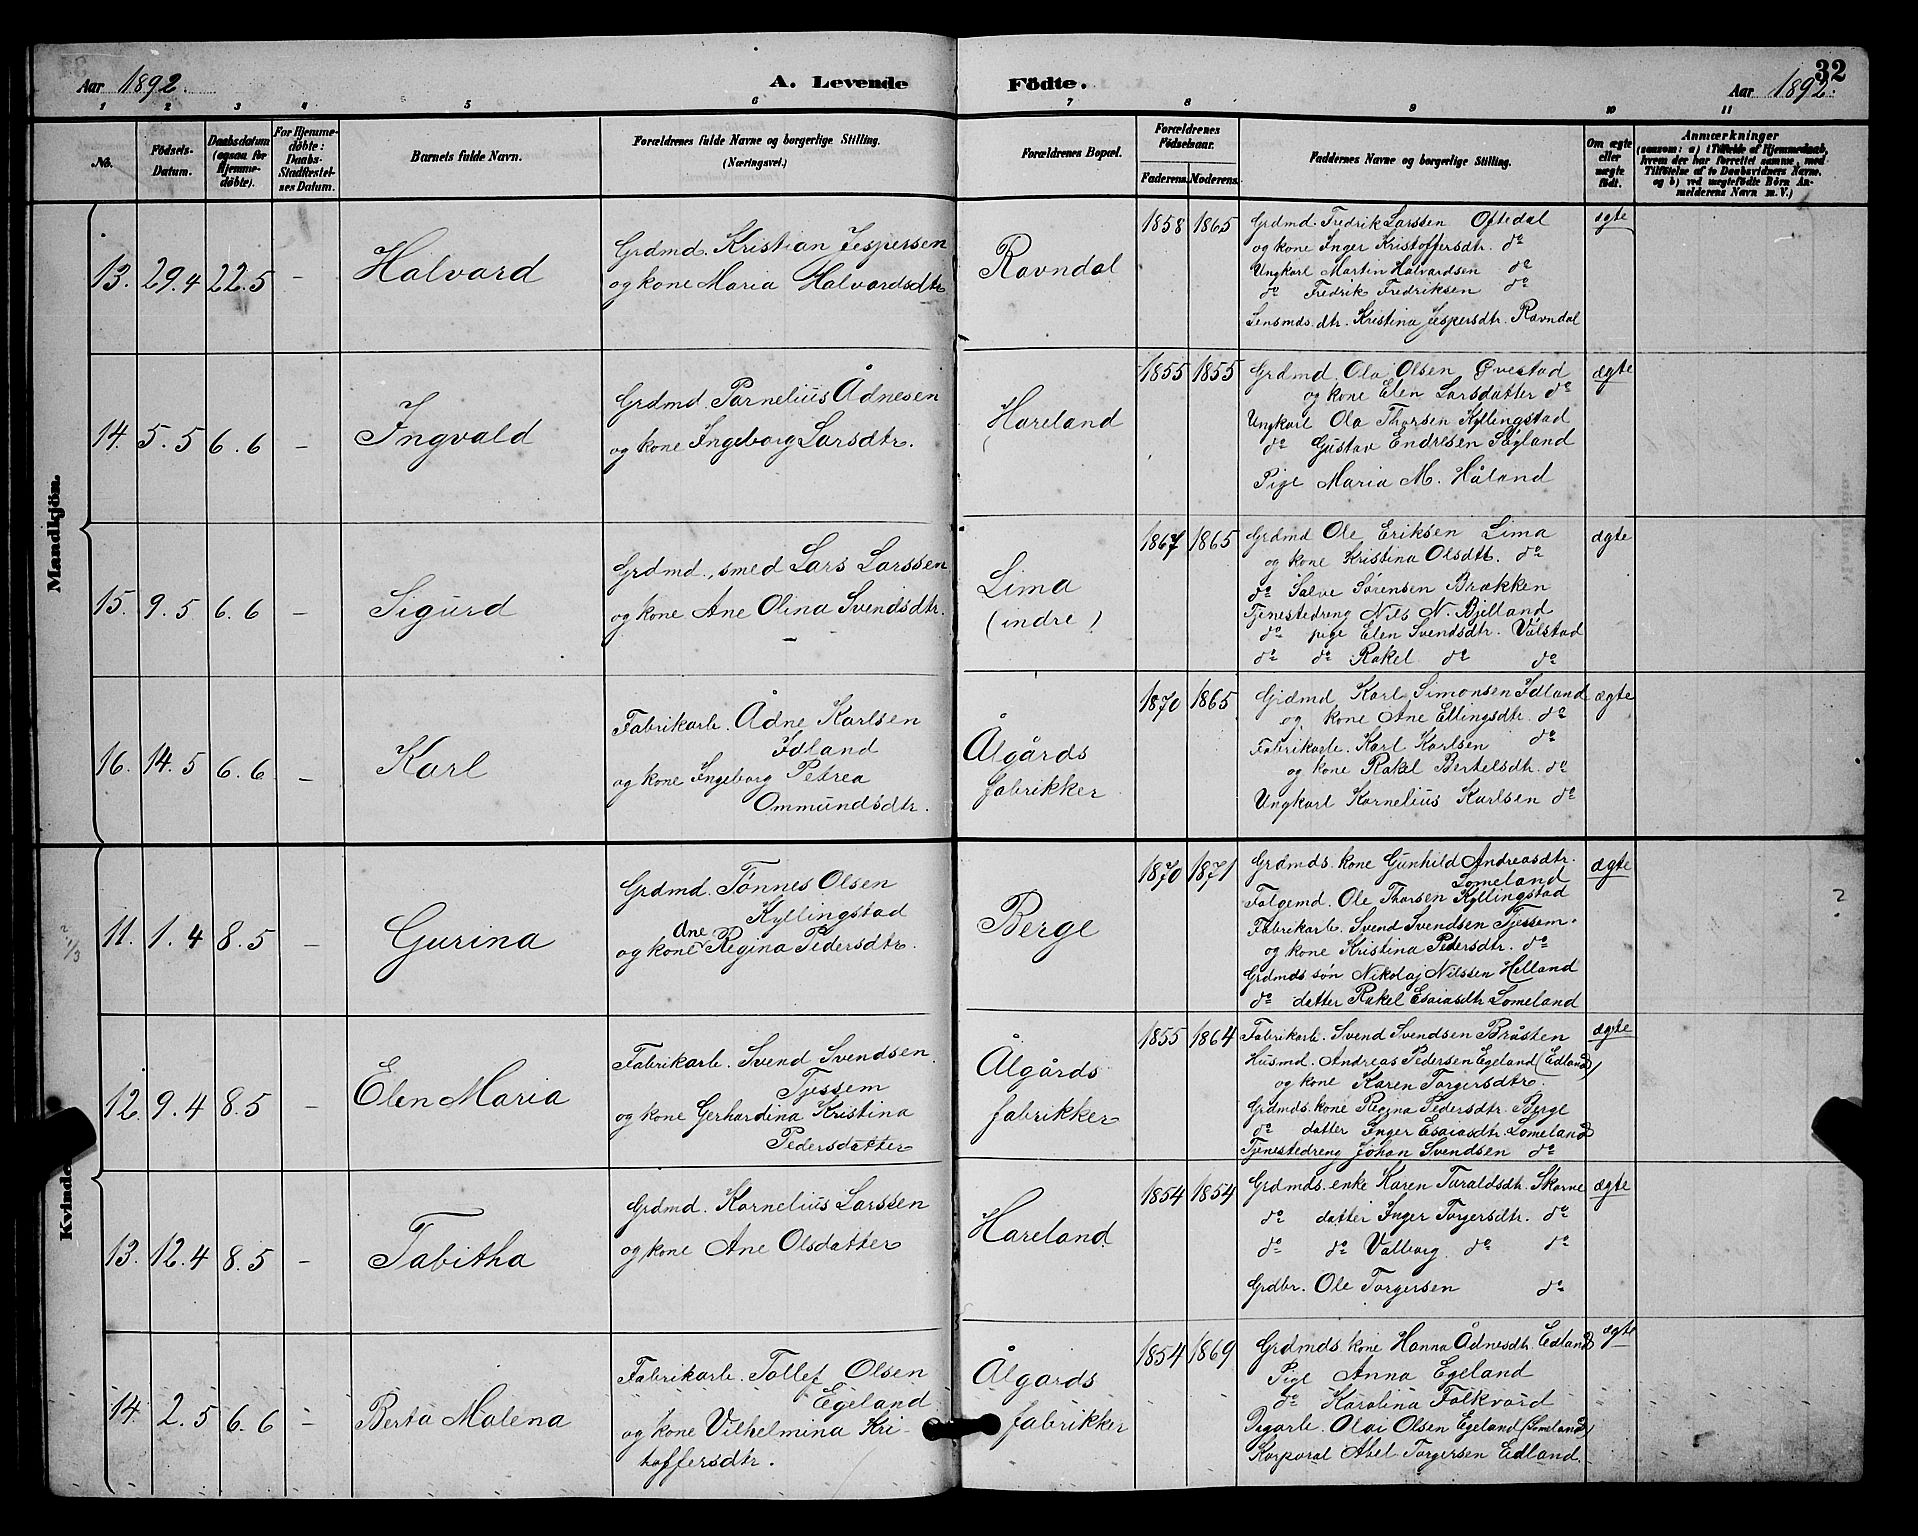 Aar 1892.
A. Levende Födte.
32
Aar 1892.
1 2 3 4 5 6 7 8 9 10 11
No.
Födsels-Datum.
Daabsdatum (ogsaa for Hjemmedöbte).
For Hjemmedöbte: Daabs-Stadfæstelsens Datum.
Barnets fulde Navn.
Forældrenes fulde Navne og borgerlige Stilling.
(Næringsvei.)
Forældrenes Bopæl.
Forældrenes Födselsaar.
Faderens. Moderens.
Faddernes Navne og borgerlige Stilling.
Om ægte eller uægte födt.
Anmærkninger
(saasom: a) i Tilfælde af Hjemmedaab, hvem der har forrettet samme, med Tilföielse af to Daabsvidners Navne. og b) ved uægtefödte Börn Anmelderens Navn m. V.)
Mandkjön.
13. 29.4 22.5 –
Halvard
Grdmd. Kristian Jespersen
og kone Maria Halvardsdtr
Ravndal
1858 1865
Grdmd. Fredrik Larssen Oftedal
og kone Inger Kristoffersdtr. do
Ungkarl Martin Halvardsen do
do Fredrik Fredriksen do
Lensmds.dtr. Kristina Jespersdtr. Ravndal
ægte
14. 5.5 6.6 –
Ingvald
Grdmd. Parnelius Ådnesen
og kone Ingeborg Larsdtr.
Hareland
1855 1855
Grdmd Ola Olsen Øvestad
og kone Elen Larsdatter do
Ungkarl Ola Thorsen Kyllingstad
do Gustav Endresen Sægland
Pige Maria M. Håland
ægte
15. 9.5 6.6 –
Sigurd
Grdmd., smed Lars Larssen
og kone Ane Olina Svendsdtr.
–
Lima
(indre)
1867 1865
Grdmd Ole Eriksen Lima
og kone Kristina Olsdtt. do
do Salve Sørensen Brækken
Tjenestedreng Nils N. Bjelland
do pige Elen Svendsdtr. Vålstad
do do Rakel do do
ægte
16. 14.5 6.6 –
Karl
Fabrikarb. Ådne Karlsen
Idland
og kone Ingeborg Petrea
Ommundsdtr.
Ålgårds
fabrikker
1870 1865
Grdmd Karl Simonsen Idland
og kone Ane Ellingsdtr. do
Fabrikarb. Karl Karlsen do
og kone Rakel Bertelsdtr. do
Ungkarl Kornelius Karlsen do
ægte
Kvinde
11. 1.4 8.5 –
Gurina
Grdmd. Tønnes Olsen
Kyllingstad
Ane
og kone Regina Pedersdtr.
Berge
1870 1871
Grdmds. kone Gunhild Andreasdtr.
Lomeland
Følgemd. Ole Thorsen Kyllingstad
Fabrikarb. Svend Svendsen Tjessem.
og kone Kristina Pedersdtr. do
Grdmds søn Nikolaj Nilssen Helland
do datter Rakel Esaiasdtr Lomeland
ægte
?
12. 9.4 8.5 –
Elen Maria
Fabrikarb. Svend Svendsen
Tjessem
og kone Gerhardina Kristina
Pedersdatter
Ålgårds
fabrikker
1855 1864
Fabrikarb. Svend Svendsen Bråsten
Husmd. Andreas Pedersen Egeland (Edland)
og kone Karen Torgersdtr.
Grdmds. kone Regina Pedersdtr. Berge
do datter Inger Esaiasdtr. Lomeland
Tjenestedreng Johan Svendsen do
ægte
13. 12.4 8.5 –
Tabitha
Grdmd. Kornelius Larssen
og kone Ane Olsdatter
Hareland.
1854 1854
Grdmds. enke Karen Taraldsdtr. Skorve
do datter Inger Torgersdtr. do
do do Valborg do do
Grdbr. Ole Torgersen do
ægte
14. 2.5 6.6 –
Berta Malena
Fabrikarb. Tollef Olsen
Egeland
og kone Vilhelmina Kri-
toffersdtr.
Ålgårds
fabrikker
1854 1869
Grdmds. kone Hanna Ådnesdtr. Edland
Pige Anna Egeland
do Karolina Folkvord
Dagarb. Olai Olsen Egeland (Lomeland)
Korporal Abel Torgersen Edland
ægte